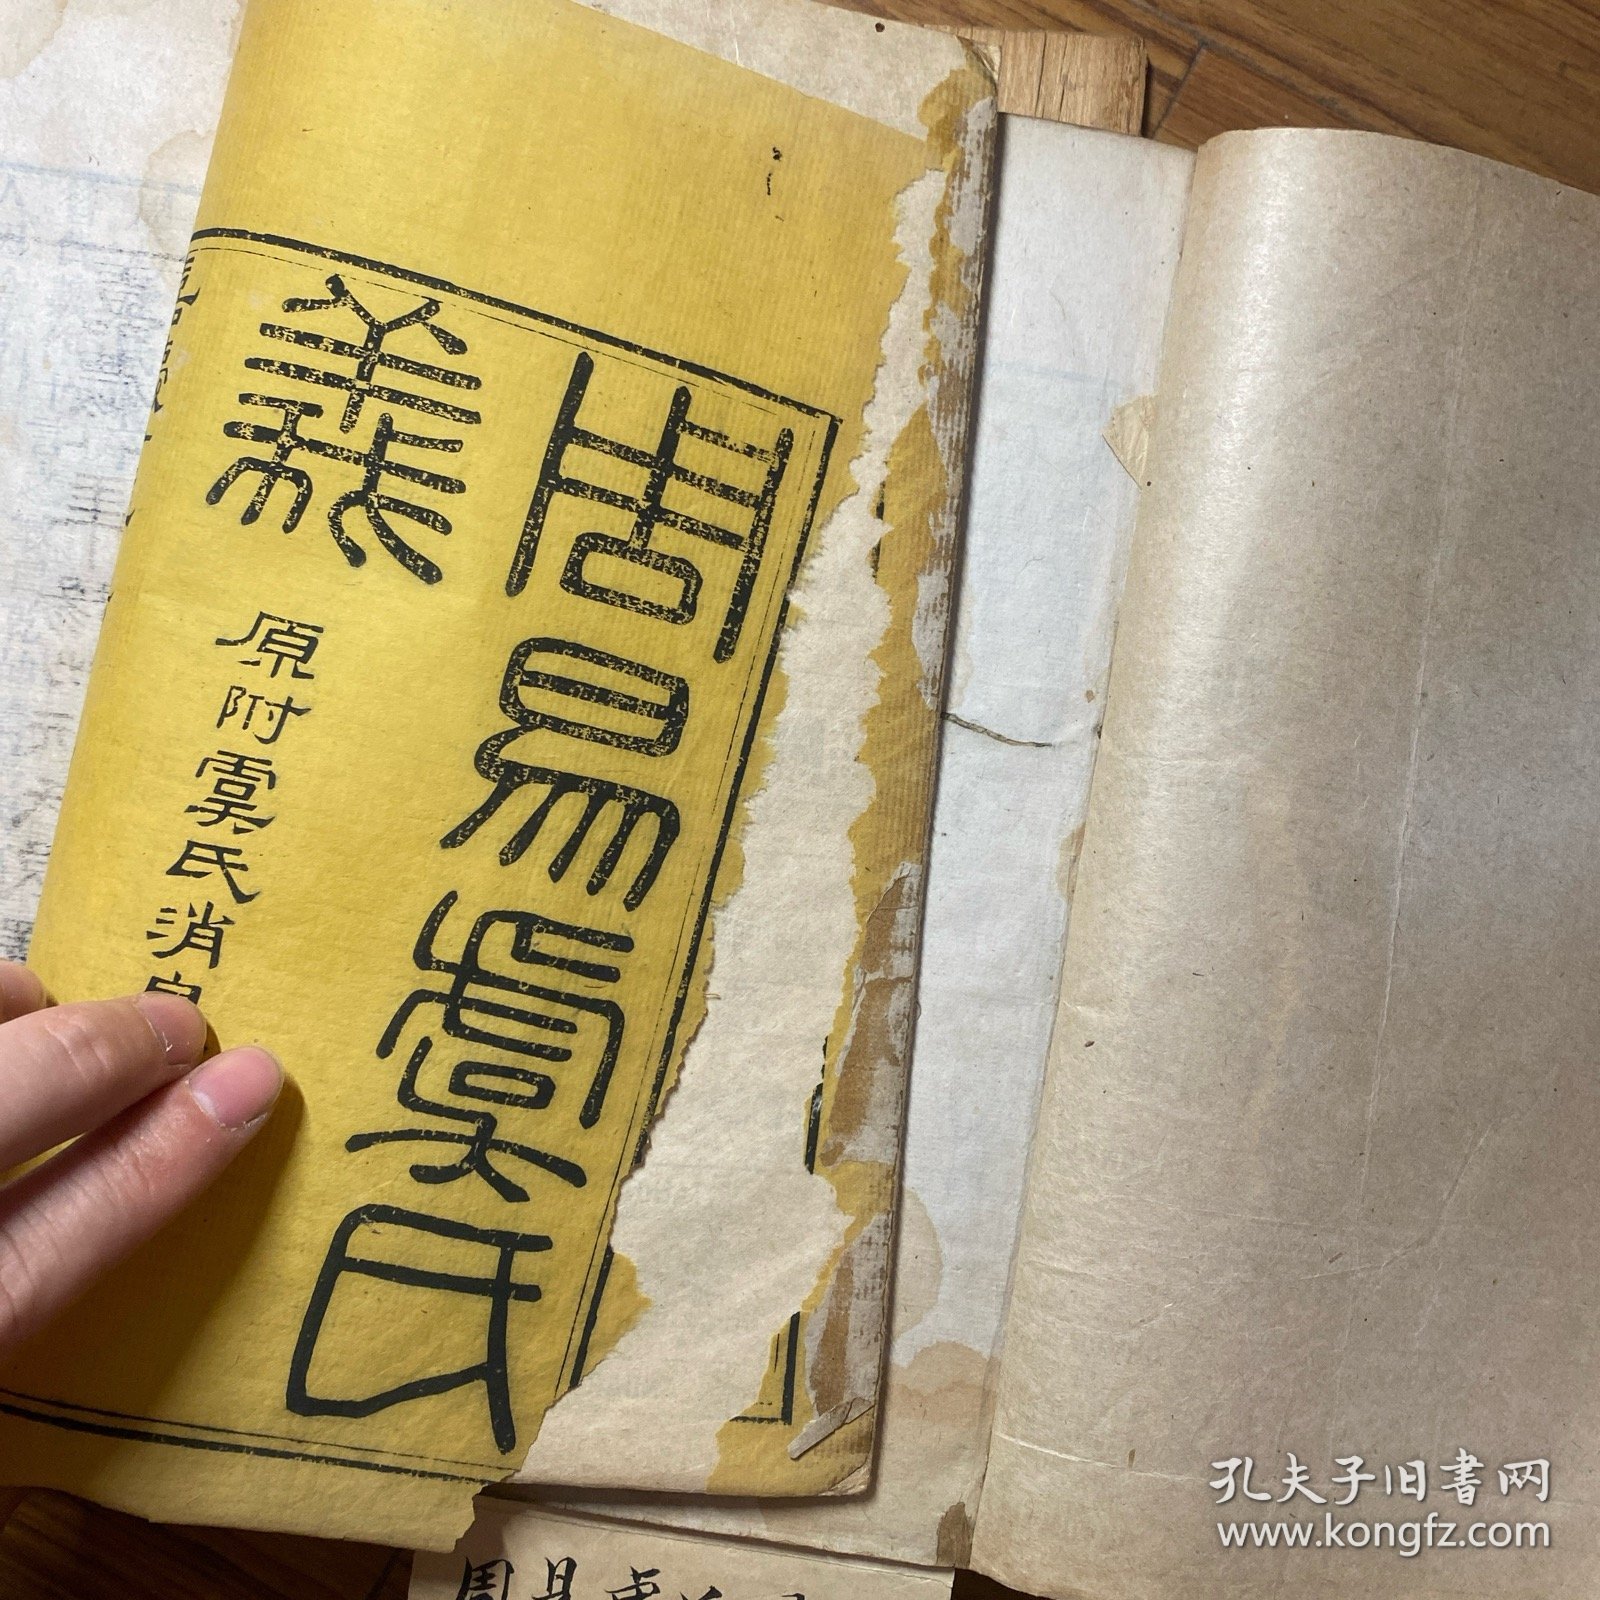 周易虞氏
義
原附虞氏消息
孔夫子旧書网
www.kongfz.com